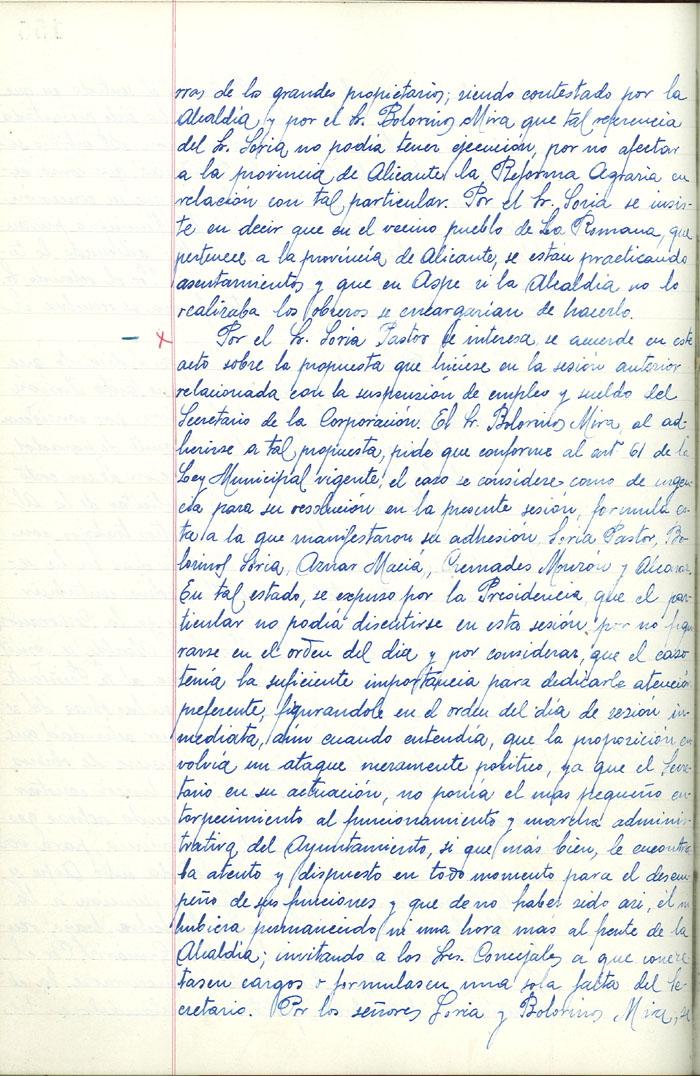 rras de los grandes propietarios; siendo contestado por la
Alcaldía y por el Sr. Bolorinos Mira que tal referencia
del Sr. Soria no podía tener ejecución, por no afectar
a la provincia de Alicante la Reforma Agraria en
relación con tal particular. Por el Sr. Soria se insis-
te en decir que en el vecino pueblo de La Romana, que
pertenece a la provincia de Alicante, se están practicando
asentamientos y que en Aspe si la Alcaldía no lo
realizaba los obreros se encargarían de hacerlo.
Por el Sr. Soria Pastor se interesa, se acuerde en este
acto sobre la propuesta que hiciese en la sesión anterior
relacionada con la suspensión de empleo y sueldo del
Secretario de la Corporación. El Sr. Bolorinos Mira, al ad-
herirse a tal propuesta, pide que conforme al artº 61 de la
Ley Municipal vigente, el caso se considere como de urgen-
cia para su resolución en la presente sesión, formula es-
ta a la que manifestaron su adhesión, Soria Pastor, Bo-
lorinos Soria, Aznar Maciá, Cremades Monzón y Alcaraz.
En tal estado, se expuso por la Presidencia, que el par-
ticular no podía discutirse en esta sesión, por no figu-
rarse en el orden del día y por considerar, que el caso
tenía la suficiente importancia para dedicarle atención
preferente, figurandole en el orden del día de sesión in-
mediata, aun cuando entendía, que la proposición en-
volvia un ataque meramente político, ya que el Secre-
tario en su actuación, no ponía el mas pequeño en-
torpecimiento al funcionamiento y marcha adminis-
trativa, del Ayuntamiento, si que más bien, le encontra-
ba atento y dispuesto en todo momento para el desem-
peño de sus funciones y que de no haber sido así, él no
hubiera permanecido ni una hora más al frente de la
Alcaldía; invitando a los Sres. Concejales a que concre-
tasen cargos o formulasen una sola falta del Se-
cretario. Por los señores Soria y Bolorinos Mira, se